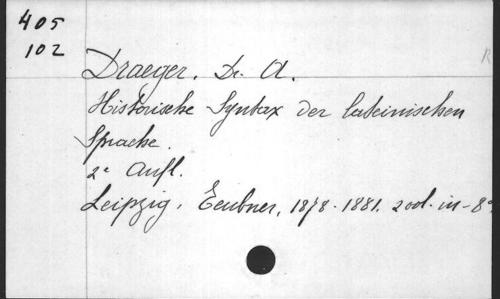 405
102
Draeger, Dr. A.
Historische Syntax der lateinischen
Sprache.
2e Aufl.
Leipzig, Teubner, 1878-1881. 2 vol. in-8°
R